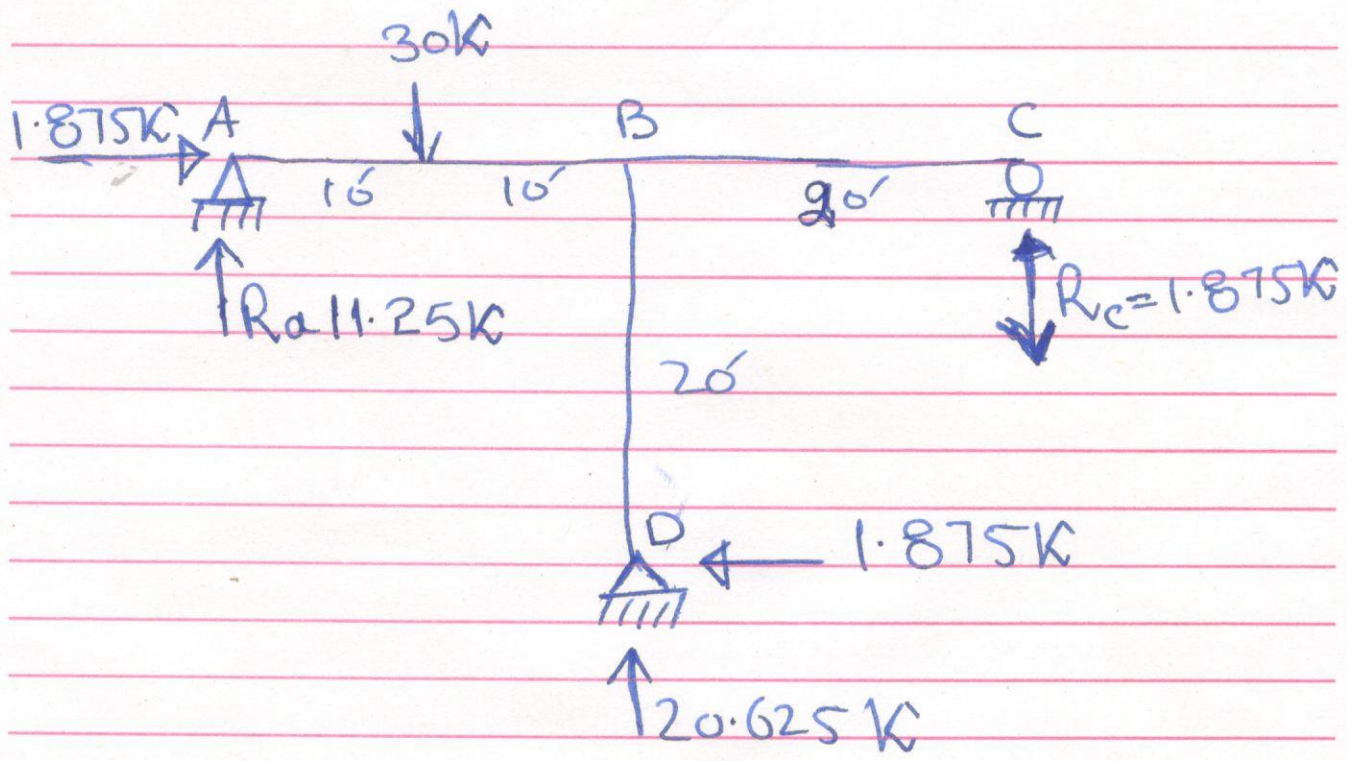 30K
1.875K A B C
10' 10' 20'
Ra 11.25K Rc=1.875K
20'
D 1.875K
20.625K